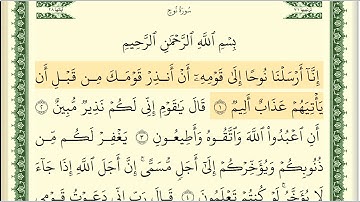 سُورَةُ نُوحٍ
بِسْمِ اللَّهِ الرَّحْمَٰنِ الرَّحِيمِ
إِنَّا أَرْسَلْنَا نُوحًا إِلَىٰ قَوْمِهِۦٓ أَنْ أَنذِرْ قَوْمَكَ مِن قَبْلِ أَن
يَأْتِيَهُمْ عَذَابٌ أَلِيمٌ ١ قَالَ يَٰقَوْمِ إِنِّى لَكُمْ نَذِيرٌ مُّبِينٌ ٢
أَنِ ٱعْبُدُوا۟ ٱللَّهَ وَٱتَّقُوهُ وَأَطِيعُونِ ٣ يَغْفِرْ لَكُم مِّن
ذُنُوبِكُمْ وَيُؤَخِّرْكُمْ إِلَىٰٓ أَجَلٍ مُّسَمًّى ۚ إِنَّ أَجَلَ ٱللَّهِ إِذَا جَآءَ
لَا يُؤَخَّرُ ۖ لَوْ كُنتُمْ تَعْلَمُونَ ٤ قَالَ رَبِّ إِنِّى دَعَوْتُ قَوْمِى